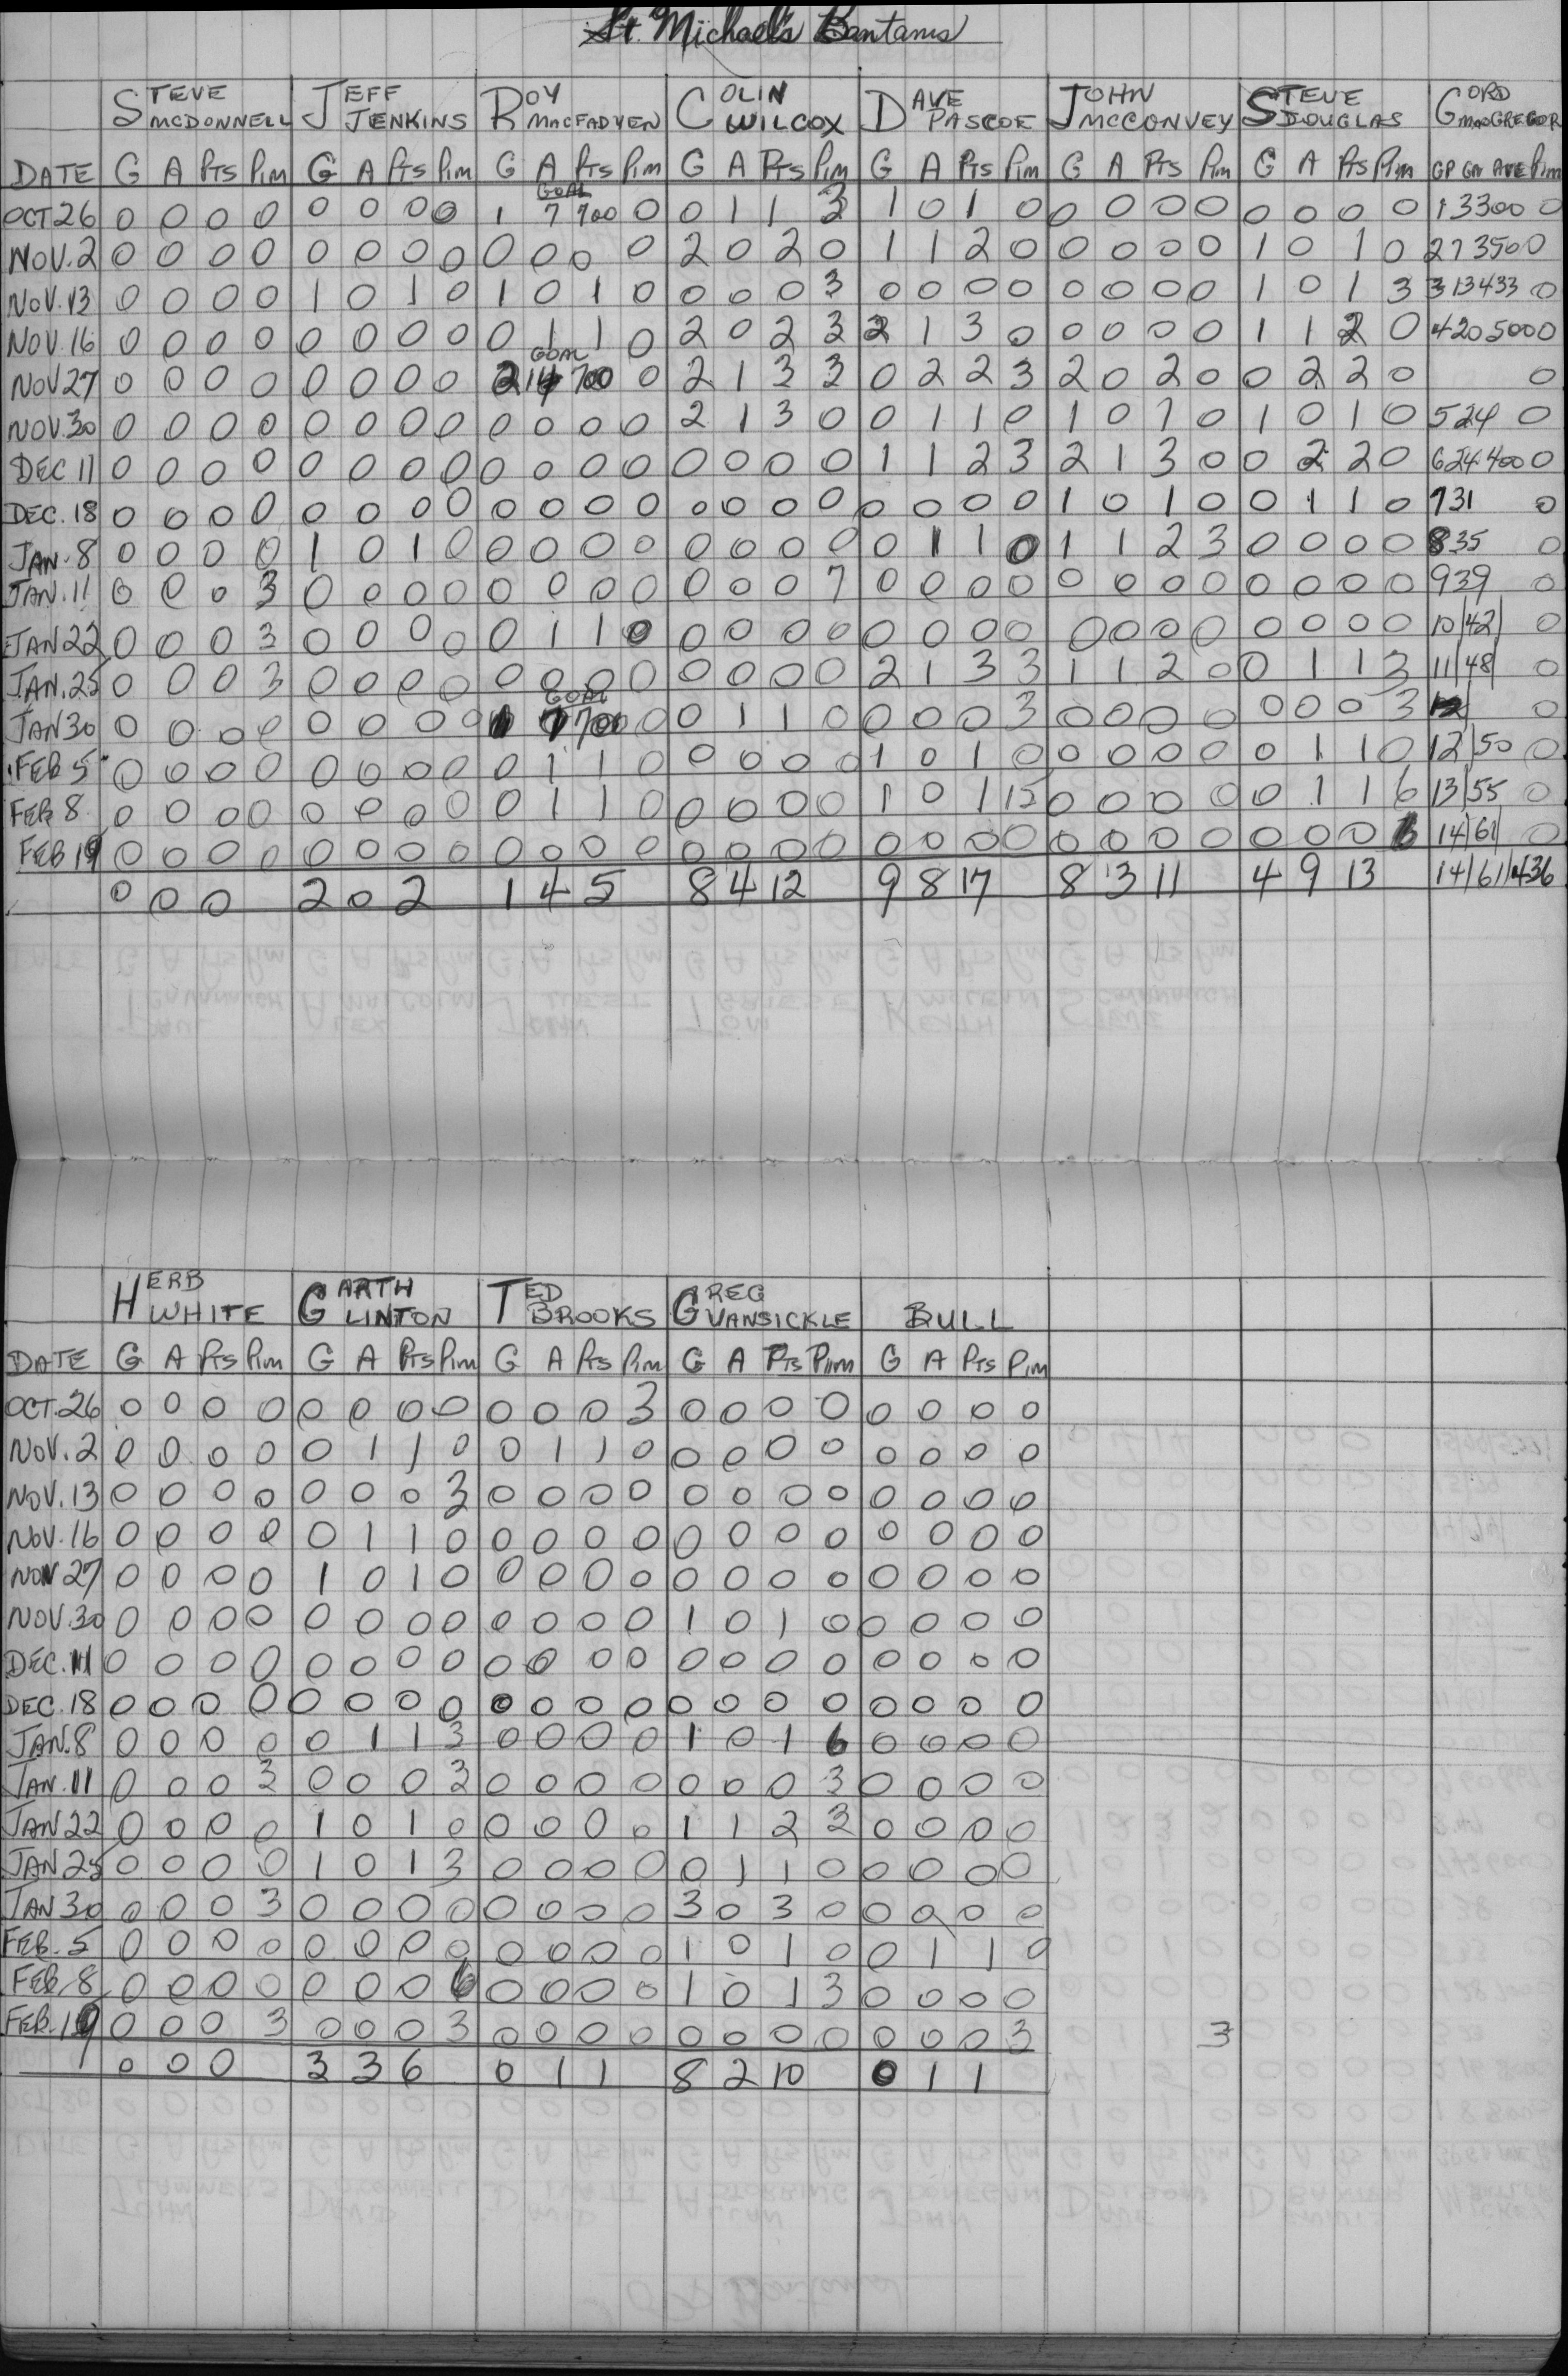 St. Michael's Bantams
STEVE MCDONNELL JEFF JENKINS ROY MACFADYEN COLIN WILCOX DAVE PASCOE JOHN MCCONVEY STEVE DOUGLAS GORD MACGREGOR
DATE G A Pts Pim G A Pts Pim G A Pts Pim G A Pts Pim G A Pts Pim G A Pts Pim G A Pts Pim GP GA AVE Pim
GOAL
OCT 26 0 0 0 0 0 0 0 0 1 7 700 0 0 1 1 3 1 0 1 0 0 0 0 0 0 0 0 0 1 3 300 0
NOV. 2 0 0 0 0 0 0 0 0 0 0 0 0 2 0 2 0 1 1 2 0 0 0 0 0 1 0 1 0 2 7 350 0
NOV. 13 0 0 0 0 1 0 1 0 1 0 1 0 0 0 0 3 0 0 0 0 0 0 0 0 1 0 1 3 3 13 433 0
NOV. 16 0 0 0 0 0 0 0 0 0 1 1 0 2 0 2 3 2 1 3 0 0 0 0 0 1 1 2 0 4 20 500 0
GOAL
NOV 27 0 0 0 0 0 0 0 0 2 14 700 0 2 1 3 3 0 2 2 3 2 0 2 0 0 2 2 0 0
NOV. 30 0 0 0 0 0 0 0 0 0 0 0 0 2 1 3 0 0 1 1 0 1 0 1 0 1 0 1 0 5 24 0
DEC 11 0 0 0 0 0 0 0 0 0 0 0 0 0 0 0 0 1 1 2 3 2 1 3 0 0 2 2 0 6 24 400 0
DEC. 18 0 0 0 0 0 0 0 0 0 0 0 0 0 0 0 0 0 0 0 0 1 0 1 0 0 1 1 0 7 31 0
JAN. 8 0 0 0 0 1 0 1 0 0 0 0 0 0 0 0 0 0 1 1 0 1 1 2 3 0 0 0 0 8 35 0
JAN. 11 0 0 0 3 0 0 0 0 0 0 0 0 0 0 0 7 0 0 0 0 0 0 0 0 0 0 0 0 9 39 0
JAN 22 0 0 0 3 0 0 0 0 0 1 1 0 0 0 0 0 0 0 0 0 0 0 0 0 0 0 0 0 10/42/ 0
JAN. 25 0 0 0 3 0 0 0 0 0 0 0 0 0 0 0 0 2 1 3 3 1 1 2 0 0 1 1 3 11/48/ 0
GOAL
JAN 30 0 0 0 0 0 0 0 0 1 7 700 0 0 1 1 0 0 0 0 3 0 0 0 0 0 0 0 3 0
FEB 5 0 0 0 0 0 0 0 0 0 1 1 0 0 0 0 0 1 0 1 0 0 0 0 0 0 1 1 0 12/50 0
FEB 8 0 0 0 0 0 0 0 0 0 1 1 0 0 0 0 0 1 0 1 15 0 0 0 0 0 1 1 6 13/55 0
FEB 19 0 0 0 0 0 0 0 0 0 0 0 0 0 0 0 0 0 0 0 0 0 0 0 0 0 0 0 6 14/61/ 0
0 0 0 2 0 2 1 4 5 8 4 12 9 8 17 8 3 11 4 9 13 14/61/436
HERB WHITE GARTH LINTON TED BROOKS GREG VANSICKLE BULL
DATE G A Pts Pim G A Pts Pim G A Pts Pim G A Pts Pim G A Pts Pim
OCT. 26 0 0 0 0 0 0 0 0 0 0 0 3 0 0 0 0 0 0 0 0
NOV. 2 0 0 0 0 0 1 1 0 0 1 1 0 0 0 0 0 0 0 0 0
NOV. 13 0 0 0 0 0 0 0 3 0 0 0 0 0 0 0 0 0 0 0 0
NOV. 16 0 0 0 0 0 1 1 0 0 0 0 0 0 0 0 0 0 0 0 0
NOV 27 0 0 0 0 1 0 1 0 0 0 0 0 0 0 0 0 0 0 0 0
NOV. 30 0 0 0 0 0 0 0 0 0 0 0 0 1 0 1 0 0 0 0 0
DEC. 11 0 0 0 0 0 0 0 0 0 0 0 0 0 0 0 0 0 0 0 0
DEC. 18 0 0 0 0 0 0 0 0 0 0 0 0 0 0 0 0 0 0 0 0
JAN. 8 0 0 0 0 0 1 1 3 0 0 0 0 1 0 1 6 0 0 0 0
JAN. 11 0 0 0 3 0 0 0 3 0 0 0 0 0 0 0 3 0 0 0 0
JAN 22 0 0 0 0 1 0 1 0 0 0 0 0 1 1 2 3 0 0 0 0
JAN 25 0 0 0 0 1 0 1 3 0 0 0 0 0 1 1 0 0 0 0 0
JAN 30 0 0 0 3 0 0 0 0 0 0 0 0 3 0 3 0 0 0 0 0
FEB. 5 0 0 0 0 0 0 0 0 0 0 0 0 1 0 1 0 0 1 1 0
FEB 8 0 0 0 0 0 0 0 6 0 0 0 0 1 0 1 3 0 0 0 0
FEB. 19 0 0 0 3 0 0 0 3 0 0 0 0 0 0 0 0 0 0 0 3 3
0 0 0 3 3 6 0 1 1 8 2 10 0 1 1